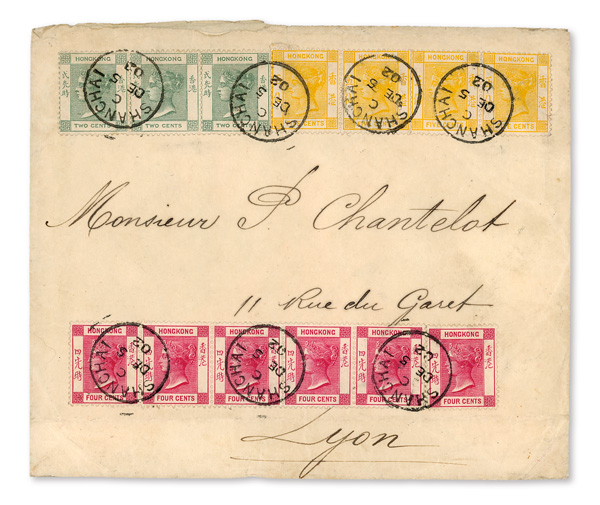 HONGKONG HONGKONG HONGKONG HONGKONG HONGKONG HONGKONG HONGKONG
香港 香港 香港
TWO CENTS TWO CENTS TWO CENTS
SHANGHAI C DE 5 02
SHANGHAI C DE 5 02
SHANGHAI C DE 5 02
SHANGHAI C DE 5 02
Monsieur P. Chantelot
11 Rue du Garet
HONGKONG HONGKONG HONGKONG HONGKONG HONGKONG HONGKONG
四先時 香港 四先時 香港 四先時 香港
FOUR CENTS FOUR CENTS FOUR CENTS FOUR CENTS FOUR CENTS FOUR CENTS
SHANGHAI C DE 5 02
SHANGHAI C DE 5 02
SHANGHAI C DE 5 02
Lyon